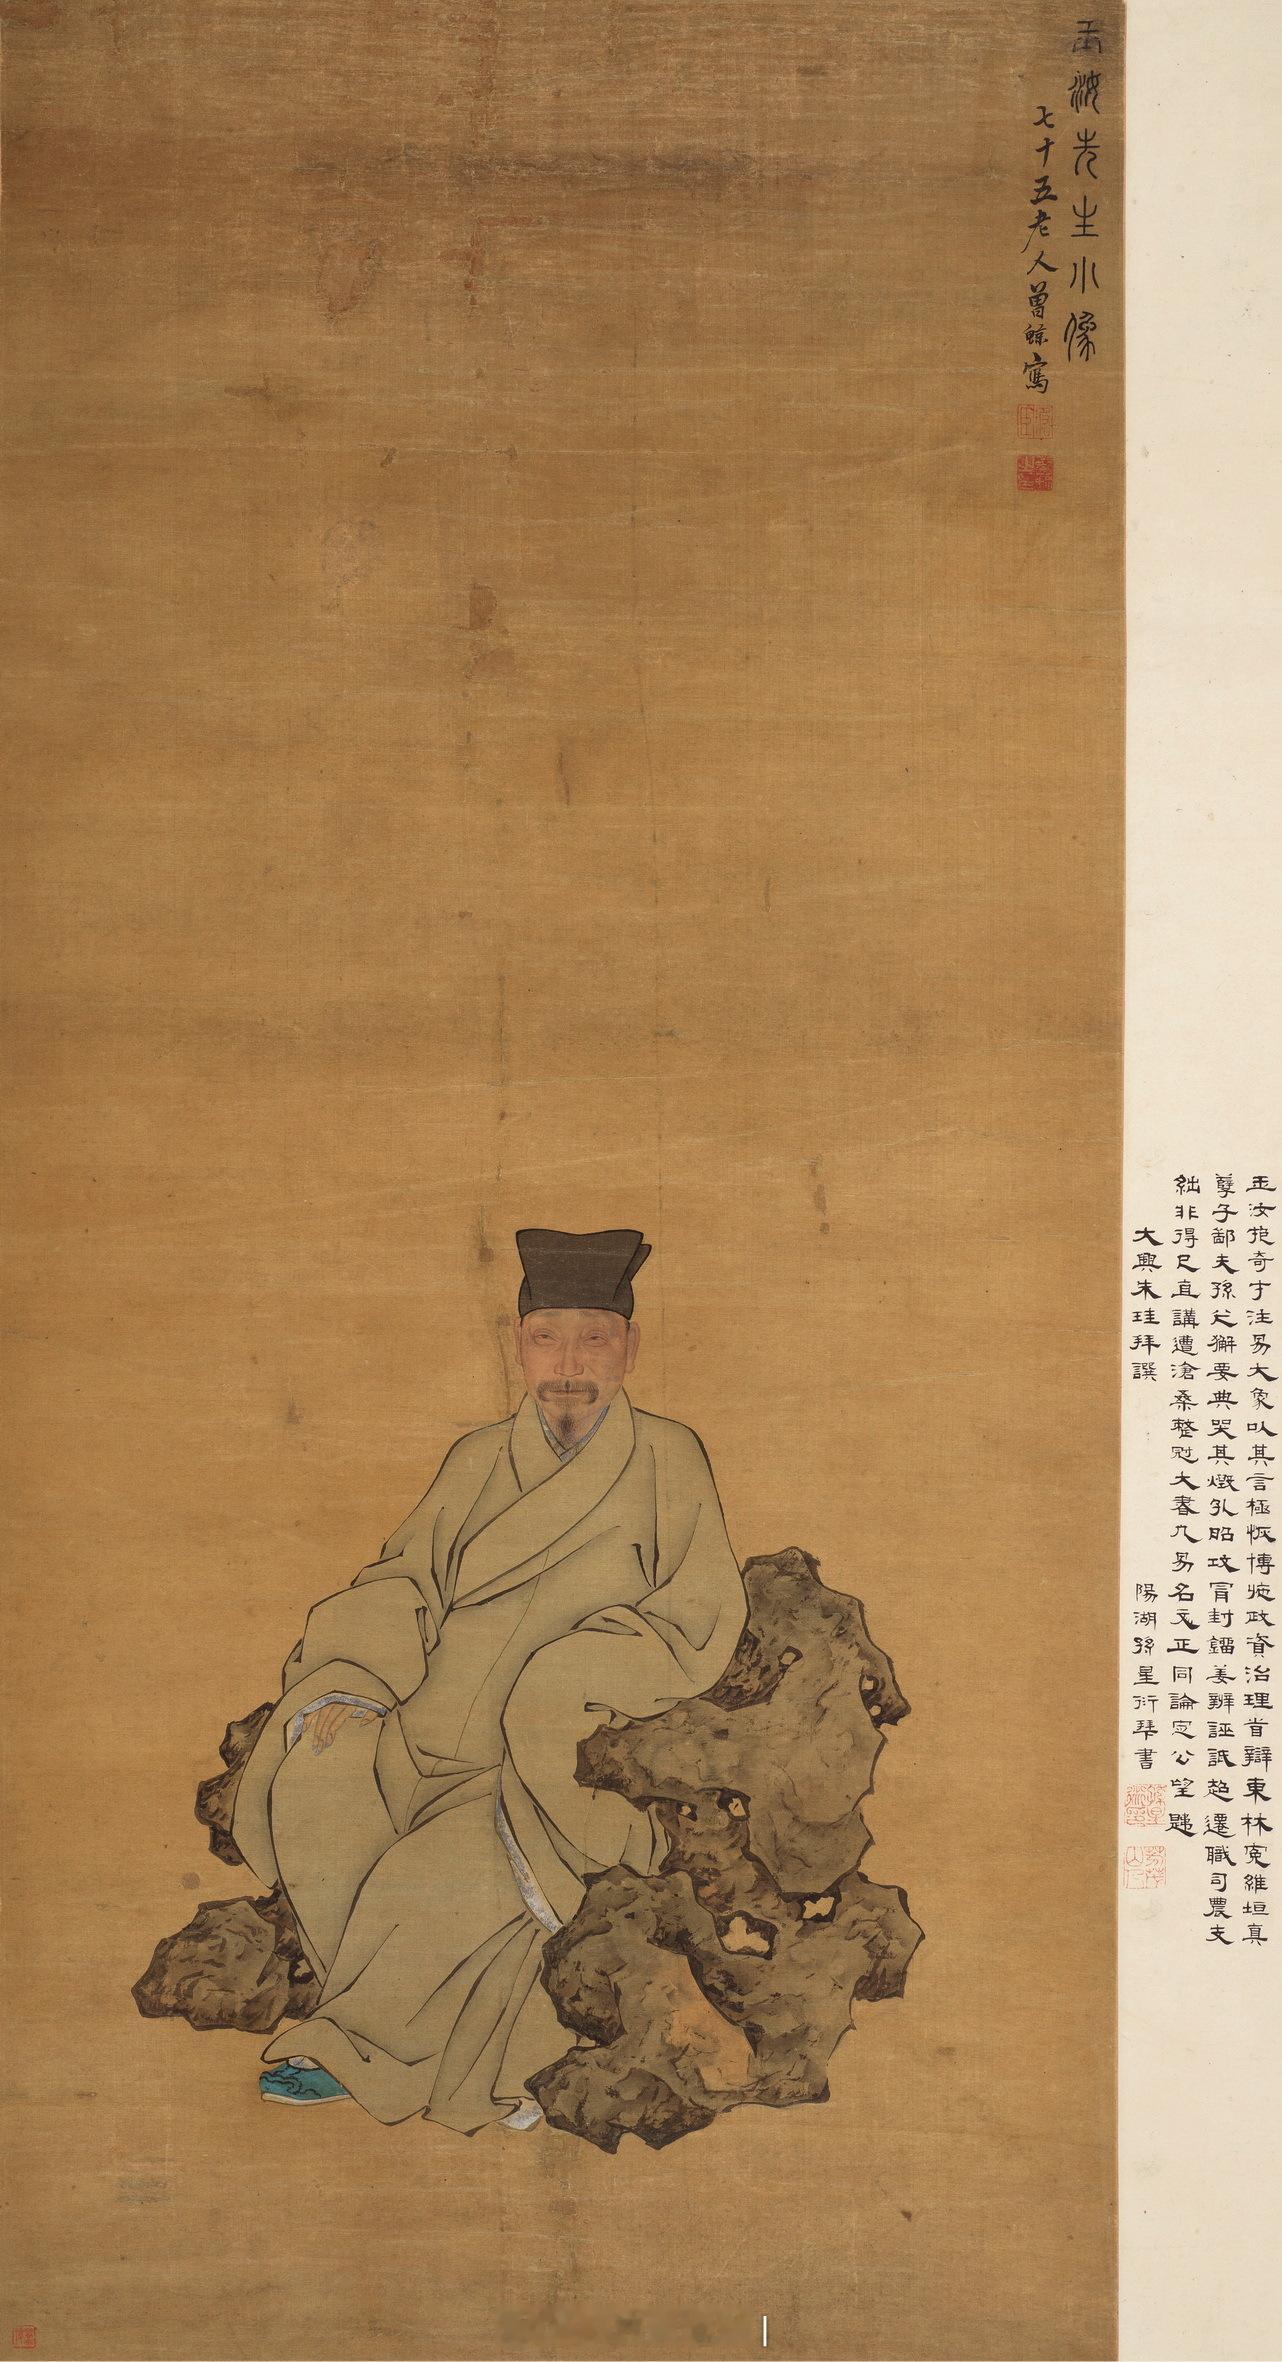 玉汝先生小像
七十五老人曾鯨寫
玉汝抱奇才注易大象以其言極恢博施政資治理首辯東林寃維垣真
孽子鄙夫孫之獬要典哭其燬孔昭攻冐封姜辨誣詆超遷職司農支
絀非得已直講遭滄桑整冠大書几易名文正同論定公望韙
大興朱珪拜譔
陽湖孫星衍琹書